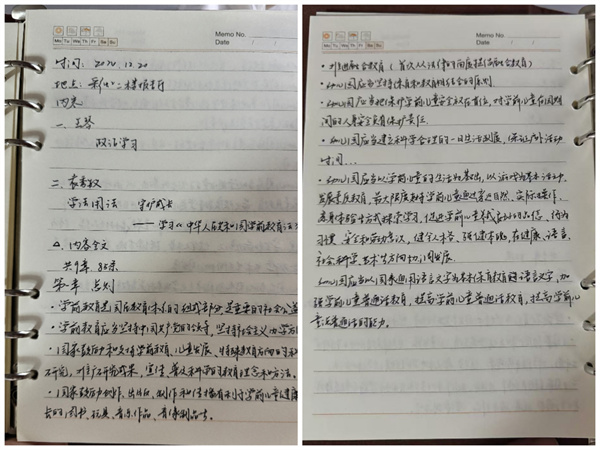 Memo No.
Mo Tu We Th Fr Sa Su
Date / /
时间: 2024.12.20
地点: 二楼
内容
一、
政治学习
二、
学法用法 守护成长
——学习《中华人民共和国学前教育法》
2. 内容全文
共9章 85条
第一章 总则
·学前教育是国民教育体系的组成部分,是重要的社会公益
·学前教育应当坚持中国共产党的领导,坚持社会主义办学方
·国家鼓励和支持学前教育、儿童发展、特殊教育方面的科
学研究,推广研究成果,宣传、普及科学的教育理念和方法。
·国家鼓励创作、出版、制作和传播有利于学前儿童健康
成长的图书、玩具、音乐作品、音像制品等。
Memo No.
Mo Tu We Th Fr Sa Su
Date / /
·推进融合教育(首次从法律的角度提倡融合教育)
·幼儿园应当坚持保育和教育相结合的原则
·幼儿园应当把保护学前儿童安全放在首位,对学前儿童在园期
间的人身安全负有保护责任
·幼儿园应当建立科学合理的一日生活制度,保证户外活动
时间...
·幼儿园应当以学前儿童的生活为基础,以游戏为基本活动,
发展素质教育,最大限度支持学前儿童通过亲近自然、实际操作、
亲身体验等方式探索学习,促进学前儿童养成良好的品德、行为
习惯、安全和劳动意识,健全人格、强健体魄,在健康、语言、
社会、科学、艺术等方面协调发展。
幼儿园应当以国家通用语言文字为基本保育教育语言文字,加
强学前儿童普通话教育,提高学前儿童普通话教育,提高学前儿
童说普通话的能力。